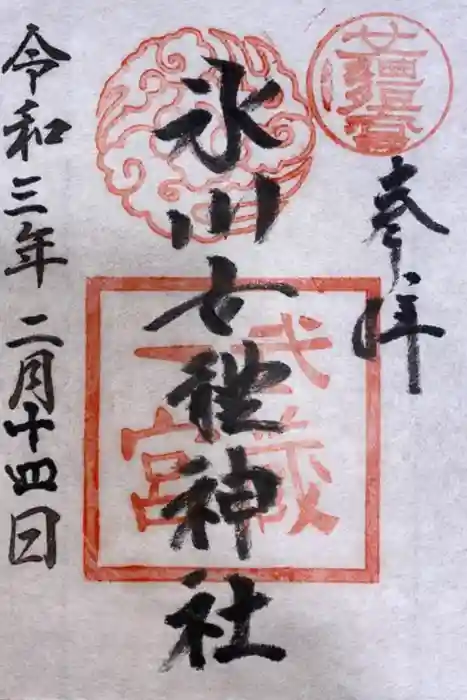 奉拝
氷川女體神社
武蔵
一宮
令和三年二月十四日